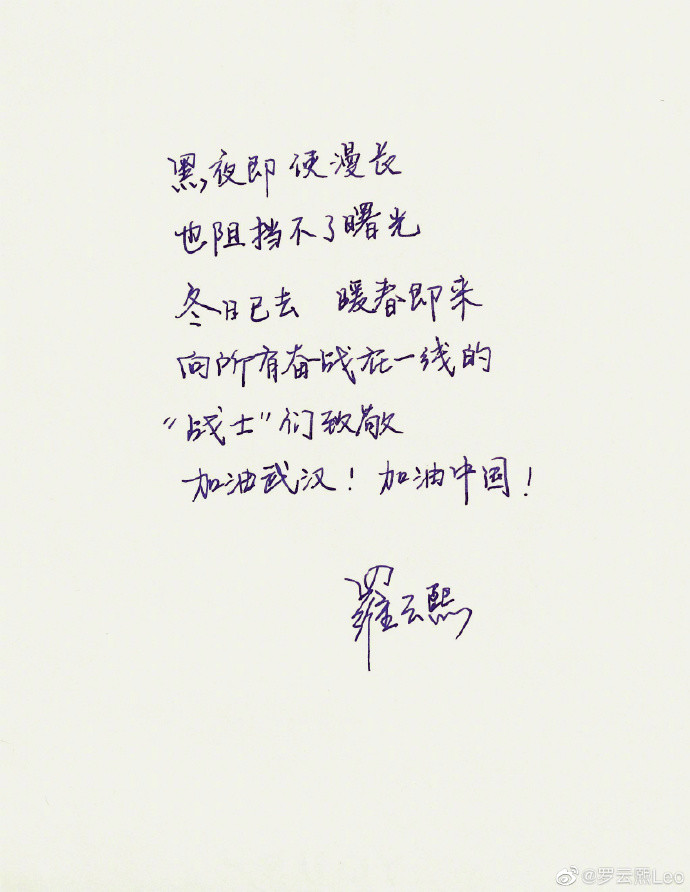 黑夜即使漫长
也阻挡不了曙光
冬日已去 暖春即来
向所有奋战在一线的
“战士”们致敬
加油武汉！加油中国！
羅云熙
@罗云熙Leo